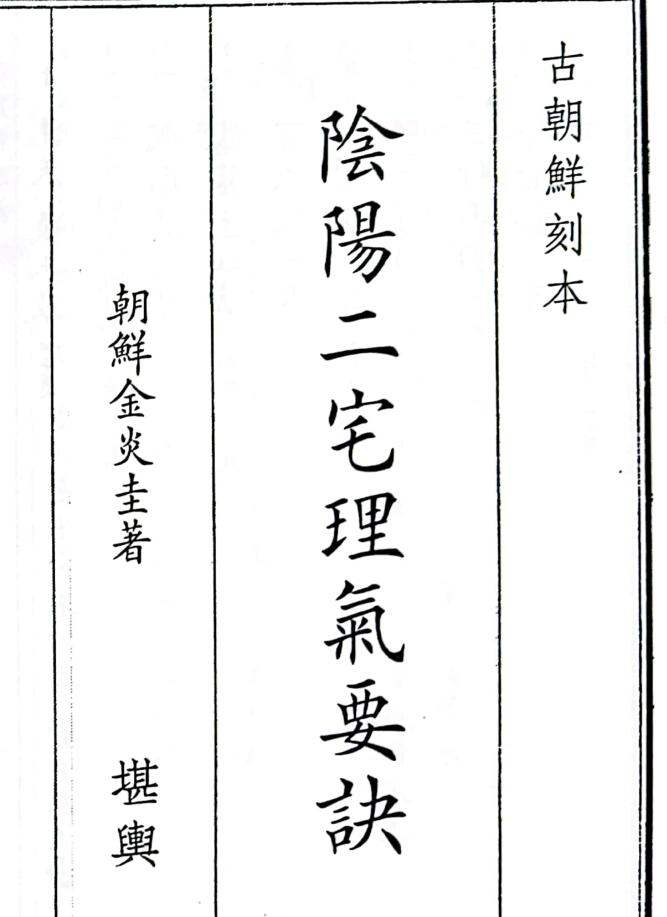 古朝鮮刻本
陰陽二宅理氣要訣
朝鮮金炎圭著
堪輿